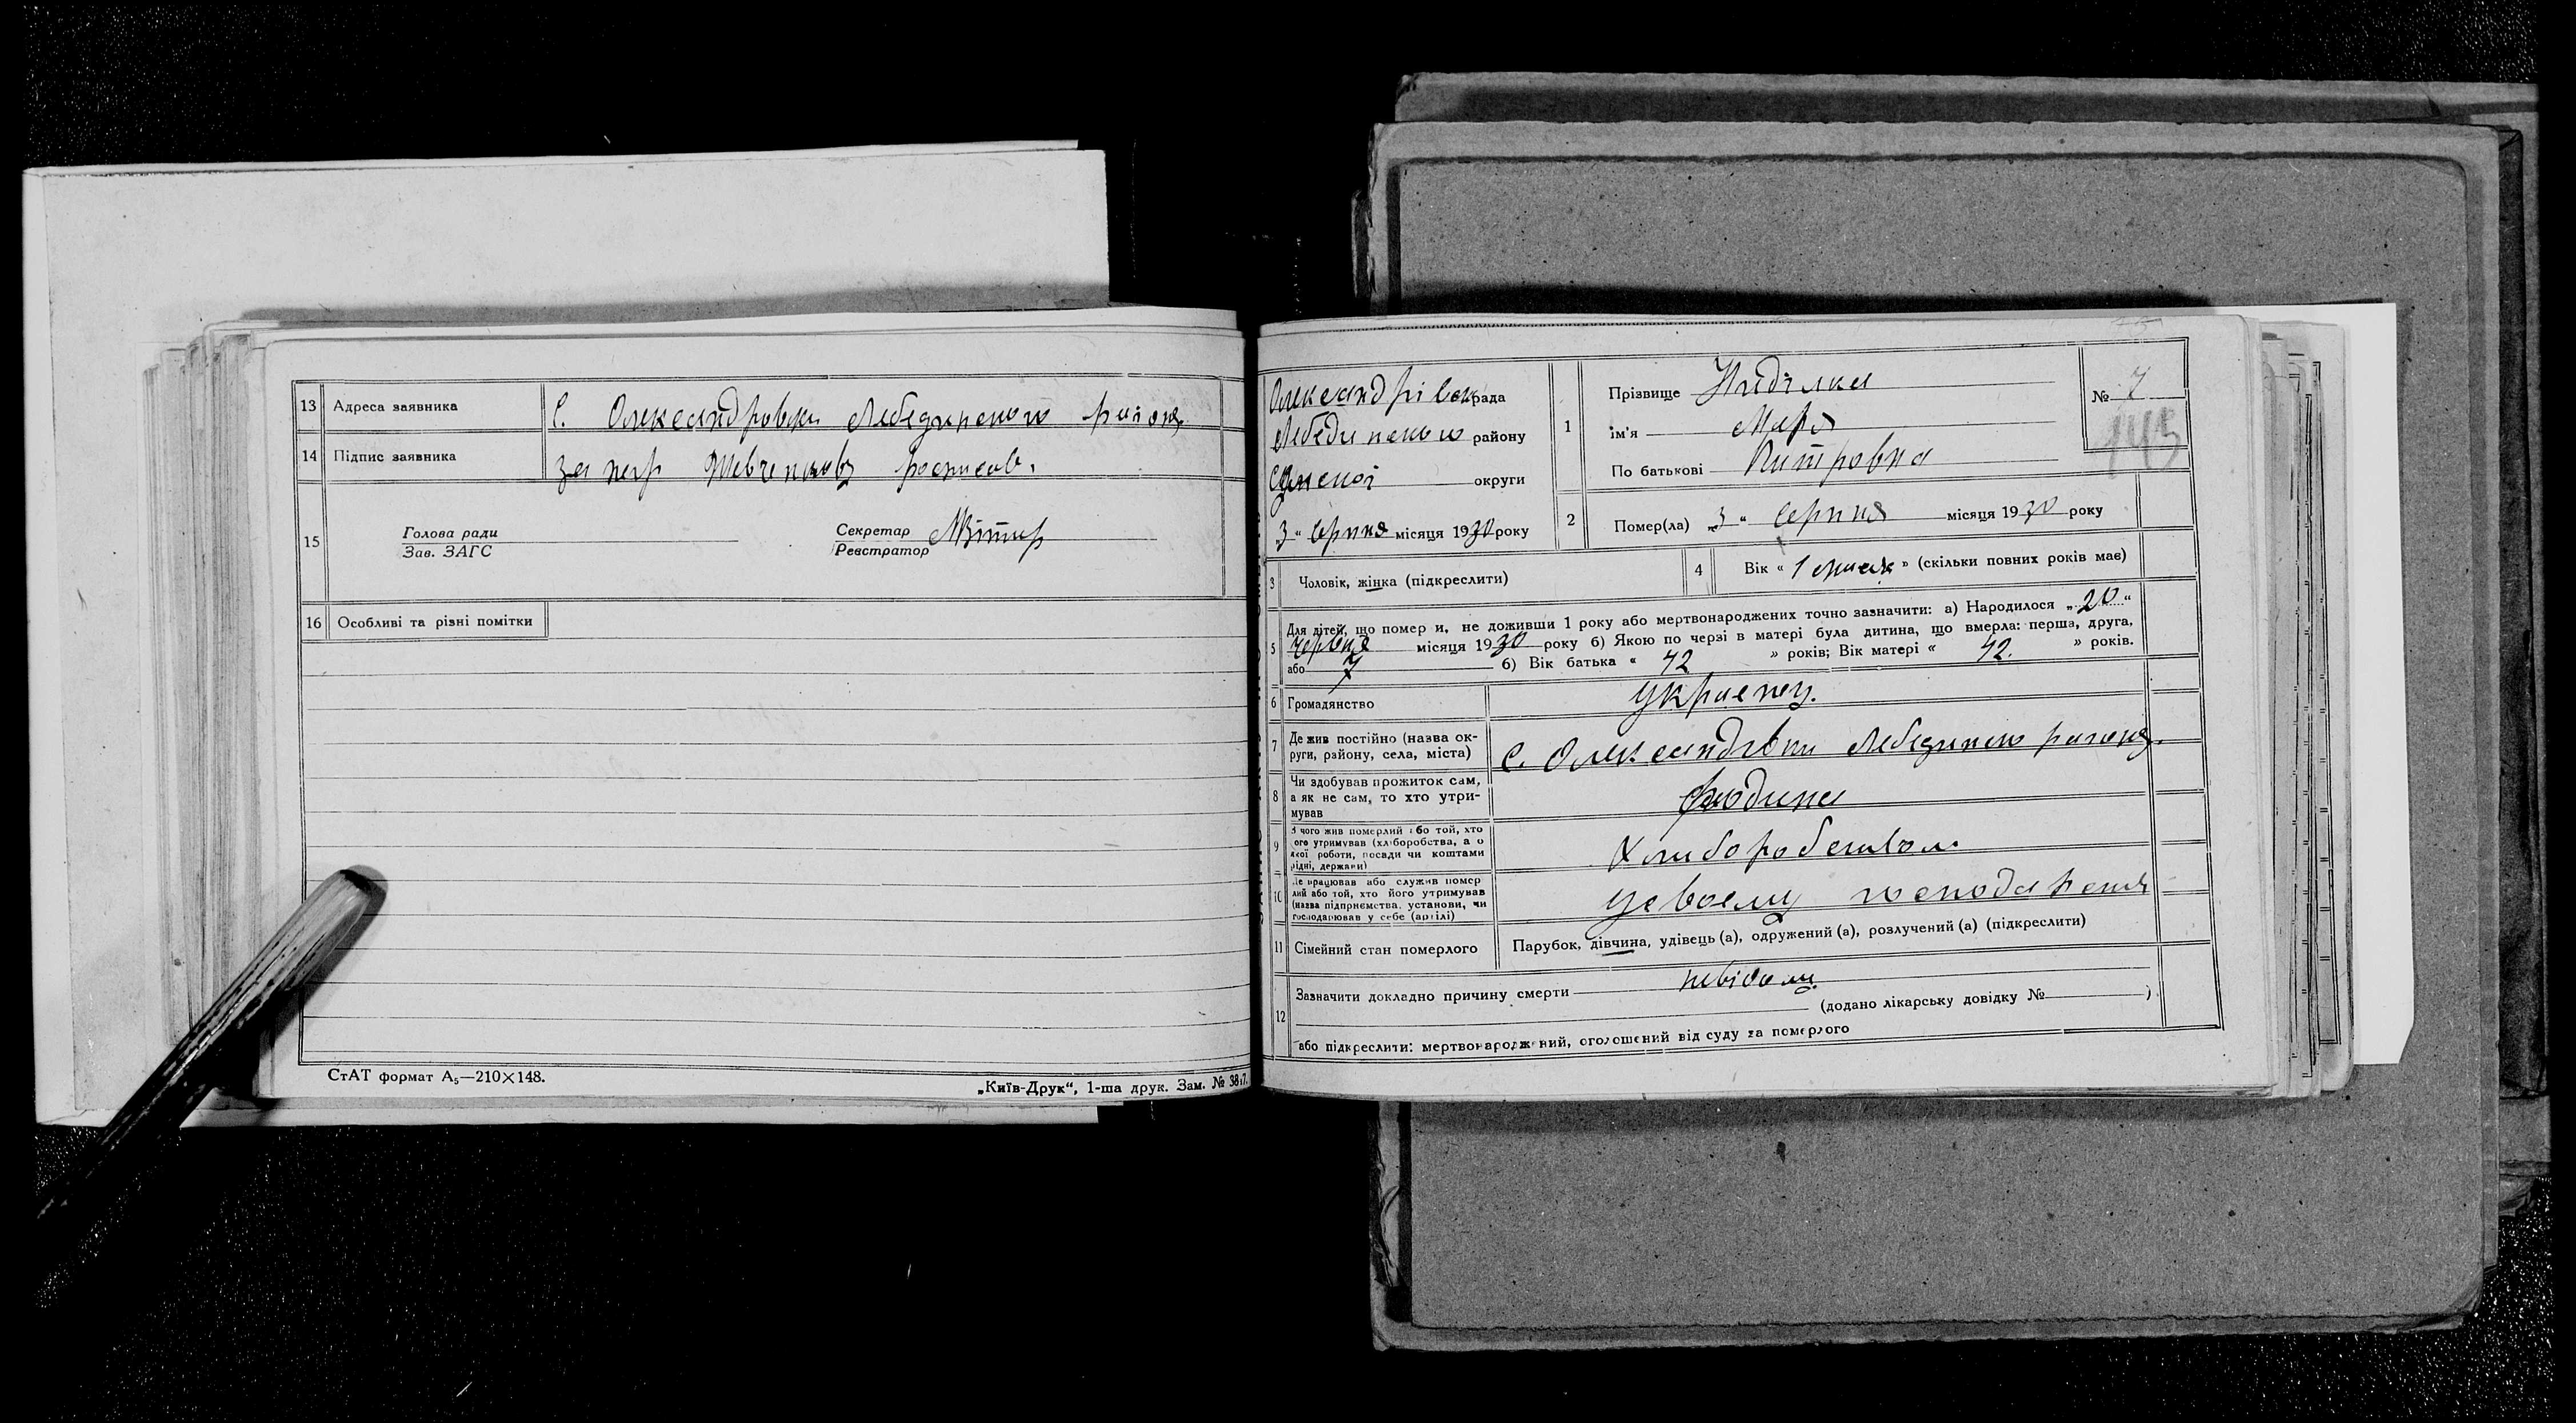 13 Адреса заявника С. Олександровки Лебединського района
14 Підпис заявника за негр Шевченков росписав.
15 Голова ради
Зав. ЗАГС
Секретар
Реєстратор
16 Особливі та різні помітки
СтАТ формат А₅—210×148.
„Київ-Друк“, 1-ша друк. Зам. №
Олександрівська рада
Лебединського району
Сумської округи
3 “ серпня місяця 1930 року
1 Прізвище Неділька
ім'я Марія
По батькові Питровна
№ 7
143
2 Помер(ла) „3 “ серпня місяця 1930 року
3 Чоловік, жінка (підкреслити)
4 Вік « 1 місяць » (скільки повних років має)
5 Для дітей, що померли, не доживши 1 року або мертвонароджених точно зазначити: а) Народилося „20“
червня місяця 1930 року б) Якою по черзі в матері була дитина, що вмерла: перша, друга,
або 7 б) Вік батька « 42 » років; Вік матері « 42. » років.
6 Громадянство украенец.
7 Де жив постійно (назва ок-
руги, району, села, міста) С. Олександрівки Лебединського района.
8 Чи здобував прожиток сам,
а як не сам, то хто утри-
мував родина
9 З чого жив померлий або той, хто
його утримував (хліборобства, а о
якої роботи, посади чи коштами
рідні, держави) Хлиборобством
10 Де працював або служив помер
лий або той, хто його утримував
(назва підприємства, установи, чи
господарював у себе (артілі) усвоему господарстві
11 Сімейний стан померлого Парубок, дівчина, удівець (а), одружений (а), розлучений (а) (підкреслити)
12 Зазначити докладно причину смерти невідома
(додано лікарську довідку № ).
або підкреслити: мертвонароджений, оголошений від суду за померлого